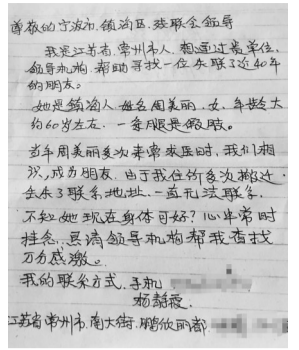 尊敬的宁波市、镇海区、残联会领导
我是江苏省、常州市人、想通过贵单位、
领导机构、帮助寻找一位失联了近40年
的朋友。
她是镇海人、姓名周美丽、女、年龄大
约60岁左右、一条腿是假肢。
当年周美丽多次来常求医时、我们相
识、成为朋友、由于我住所多次搬迁、
丢失了联系地址、一直无法联系、
不知她现在身体可好？心中常时
挂念、恳请领导机构帮我查找
万分感激。
我的联系方式、手机
杨静霞、
江苏省常州市、南大街、鹏欣丽都